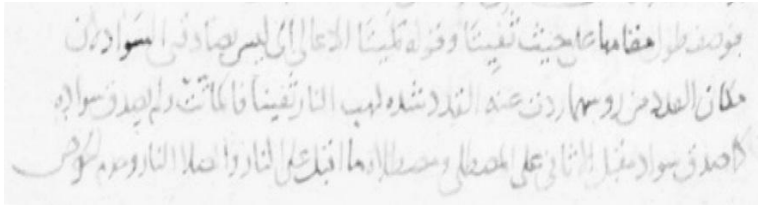 فوصف طول مقامها على حيث ثفيتا وقوله كميتا الاعالى اى ليس بصادق السواد لان
مكان القدد من روسهما ردت عنه القدر شده لهب النار ثفينا فاكماتت ولم يصدق سواده
كما صدق سواد مقبل الاثافى على المصطلى ومصطلاه ما اقبل على النار والصلا النار وعدم